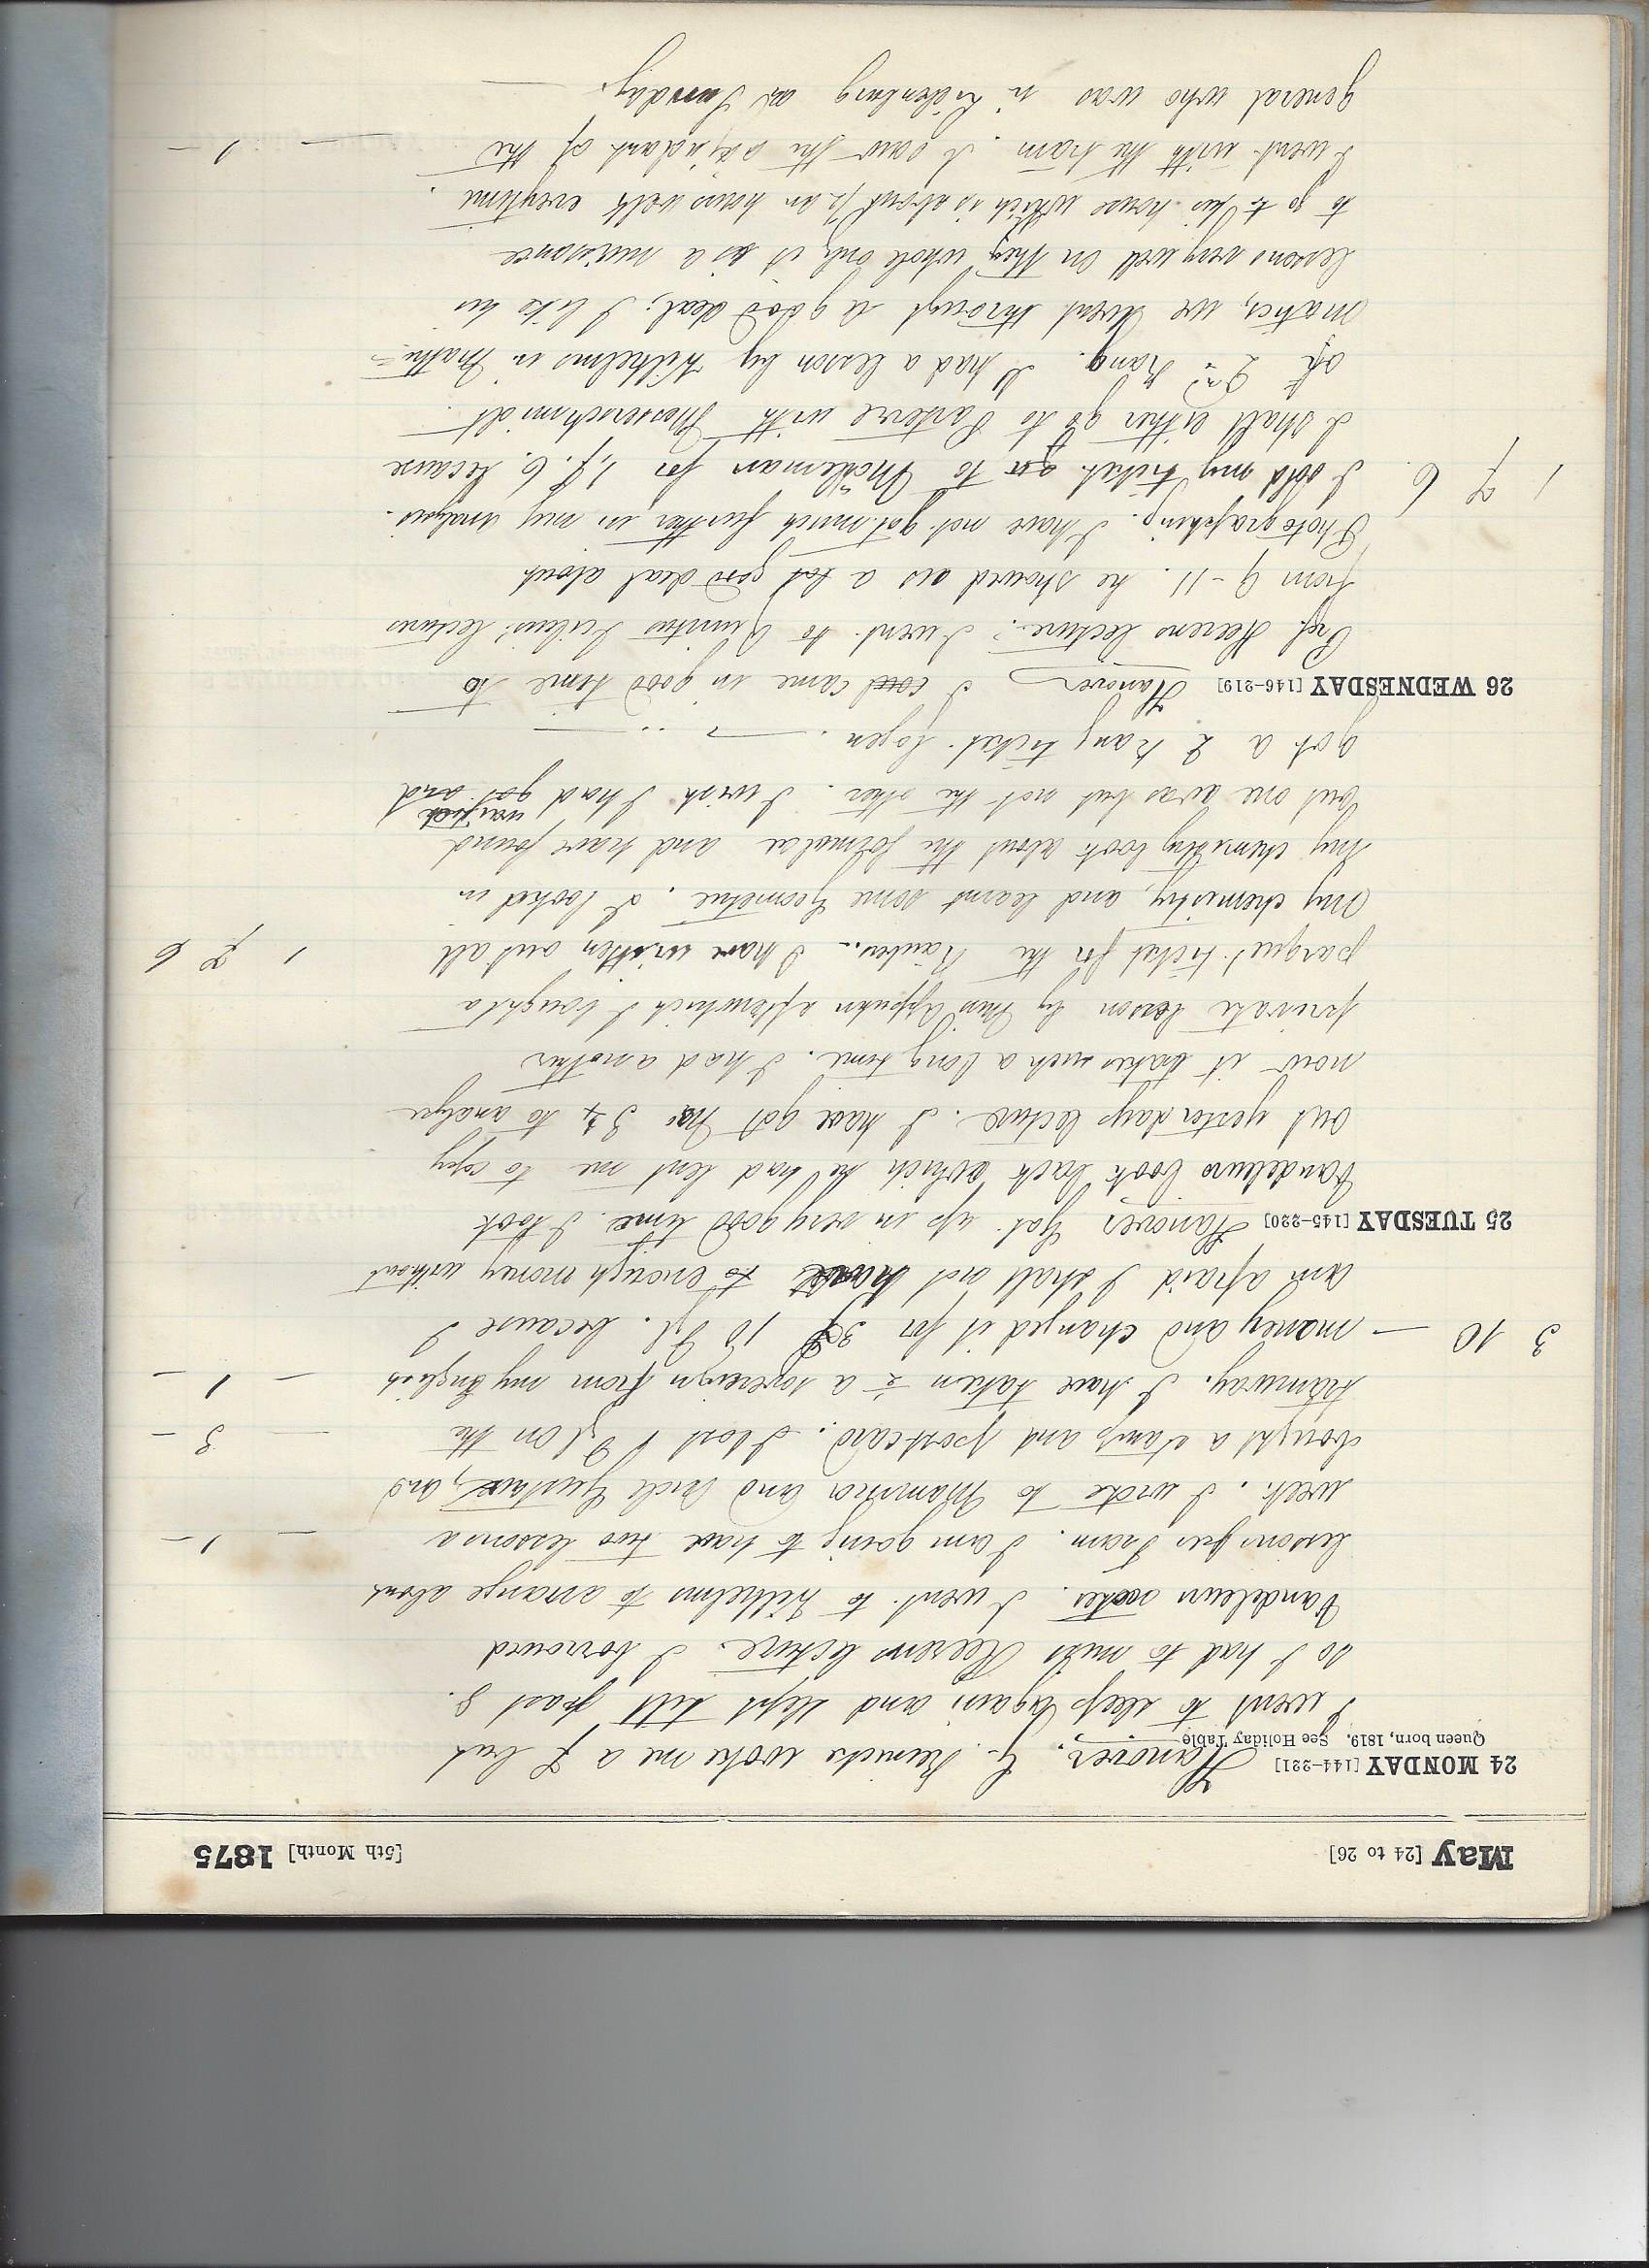 May [24 to 26] [5th Month] 1875
24 MONDAY [144-221] Hanover. G. woke me a 7 but
Queen born, 1819. See Holiday Table
I went to sleep again and slept till past 8.
so I had to miss Heerens lecture. I borrowed
Vandeleurs notes. I went to Wilhelms to arrange about
lessons per Tram. I am going to have two lessons a — 1 —
week. I wrote to Mamma and Onkel Gustav, and
bought a stamp and postcard. I lost 1 Fgl on the — 3 —
tramway. I have taken ½ a sovereign from my English — 1 —
3 10 — money and changed it for 3 10 Fgl. because I
am afraid I shall not have to enough money without
25 TUESDAY [145-220] Hanover Got up in very good time. I took
Vandeleurs book back which he had lent me to copy
out yesterdays lecture. I have got No 34 to analyse
now it takes such a long time. I had another
private lesson by Miss Appuhn afterwhich I bought a
parquet ticket for the Räuber. I have written out all 1 7 6
my chemistry, and learnt some Geometrie. I looked in
my chemistry book about the formulae and have found
out one was but not the other. I wish I had got and
waited
got a 2 rang ticket. Logen.
26 WEDNESDAY [146-219] Hanover I came in good time to
Prof. Heerens lecture. I went to Quintus Icilius' lectures
from 9-11. he showed us a lot good deal about
Photographing. I have not got much further in my analysis.
1 7 6. I sold my ticket to Mölleman for 1,7.6. because
I shall either go to Parterre with Messerschmidt
or 2nd Rang. I had a lesson by Wilhelms in Mathe=
matics, we went through a good deal; I like his
lessons very well on the whole only it is a nuisance
to go to his house which is about ½ an hours walk everytime
I went with the tram. I saw the adjudant of the — 1 —
general who was in on Sunday.